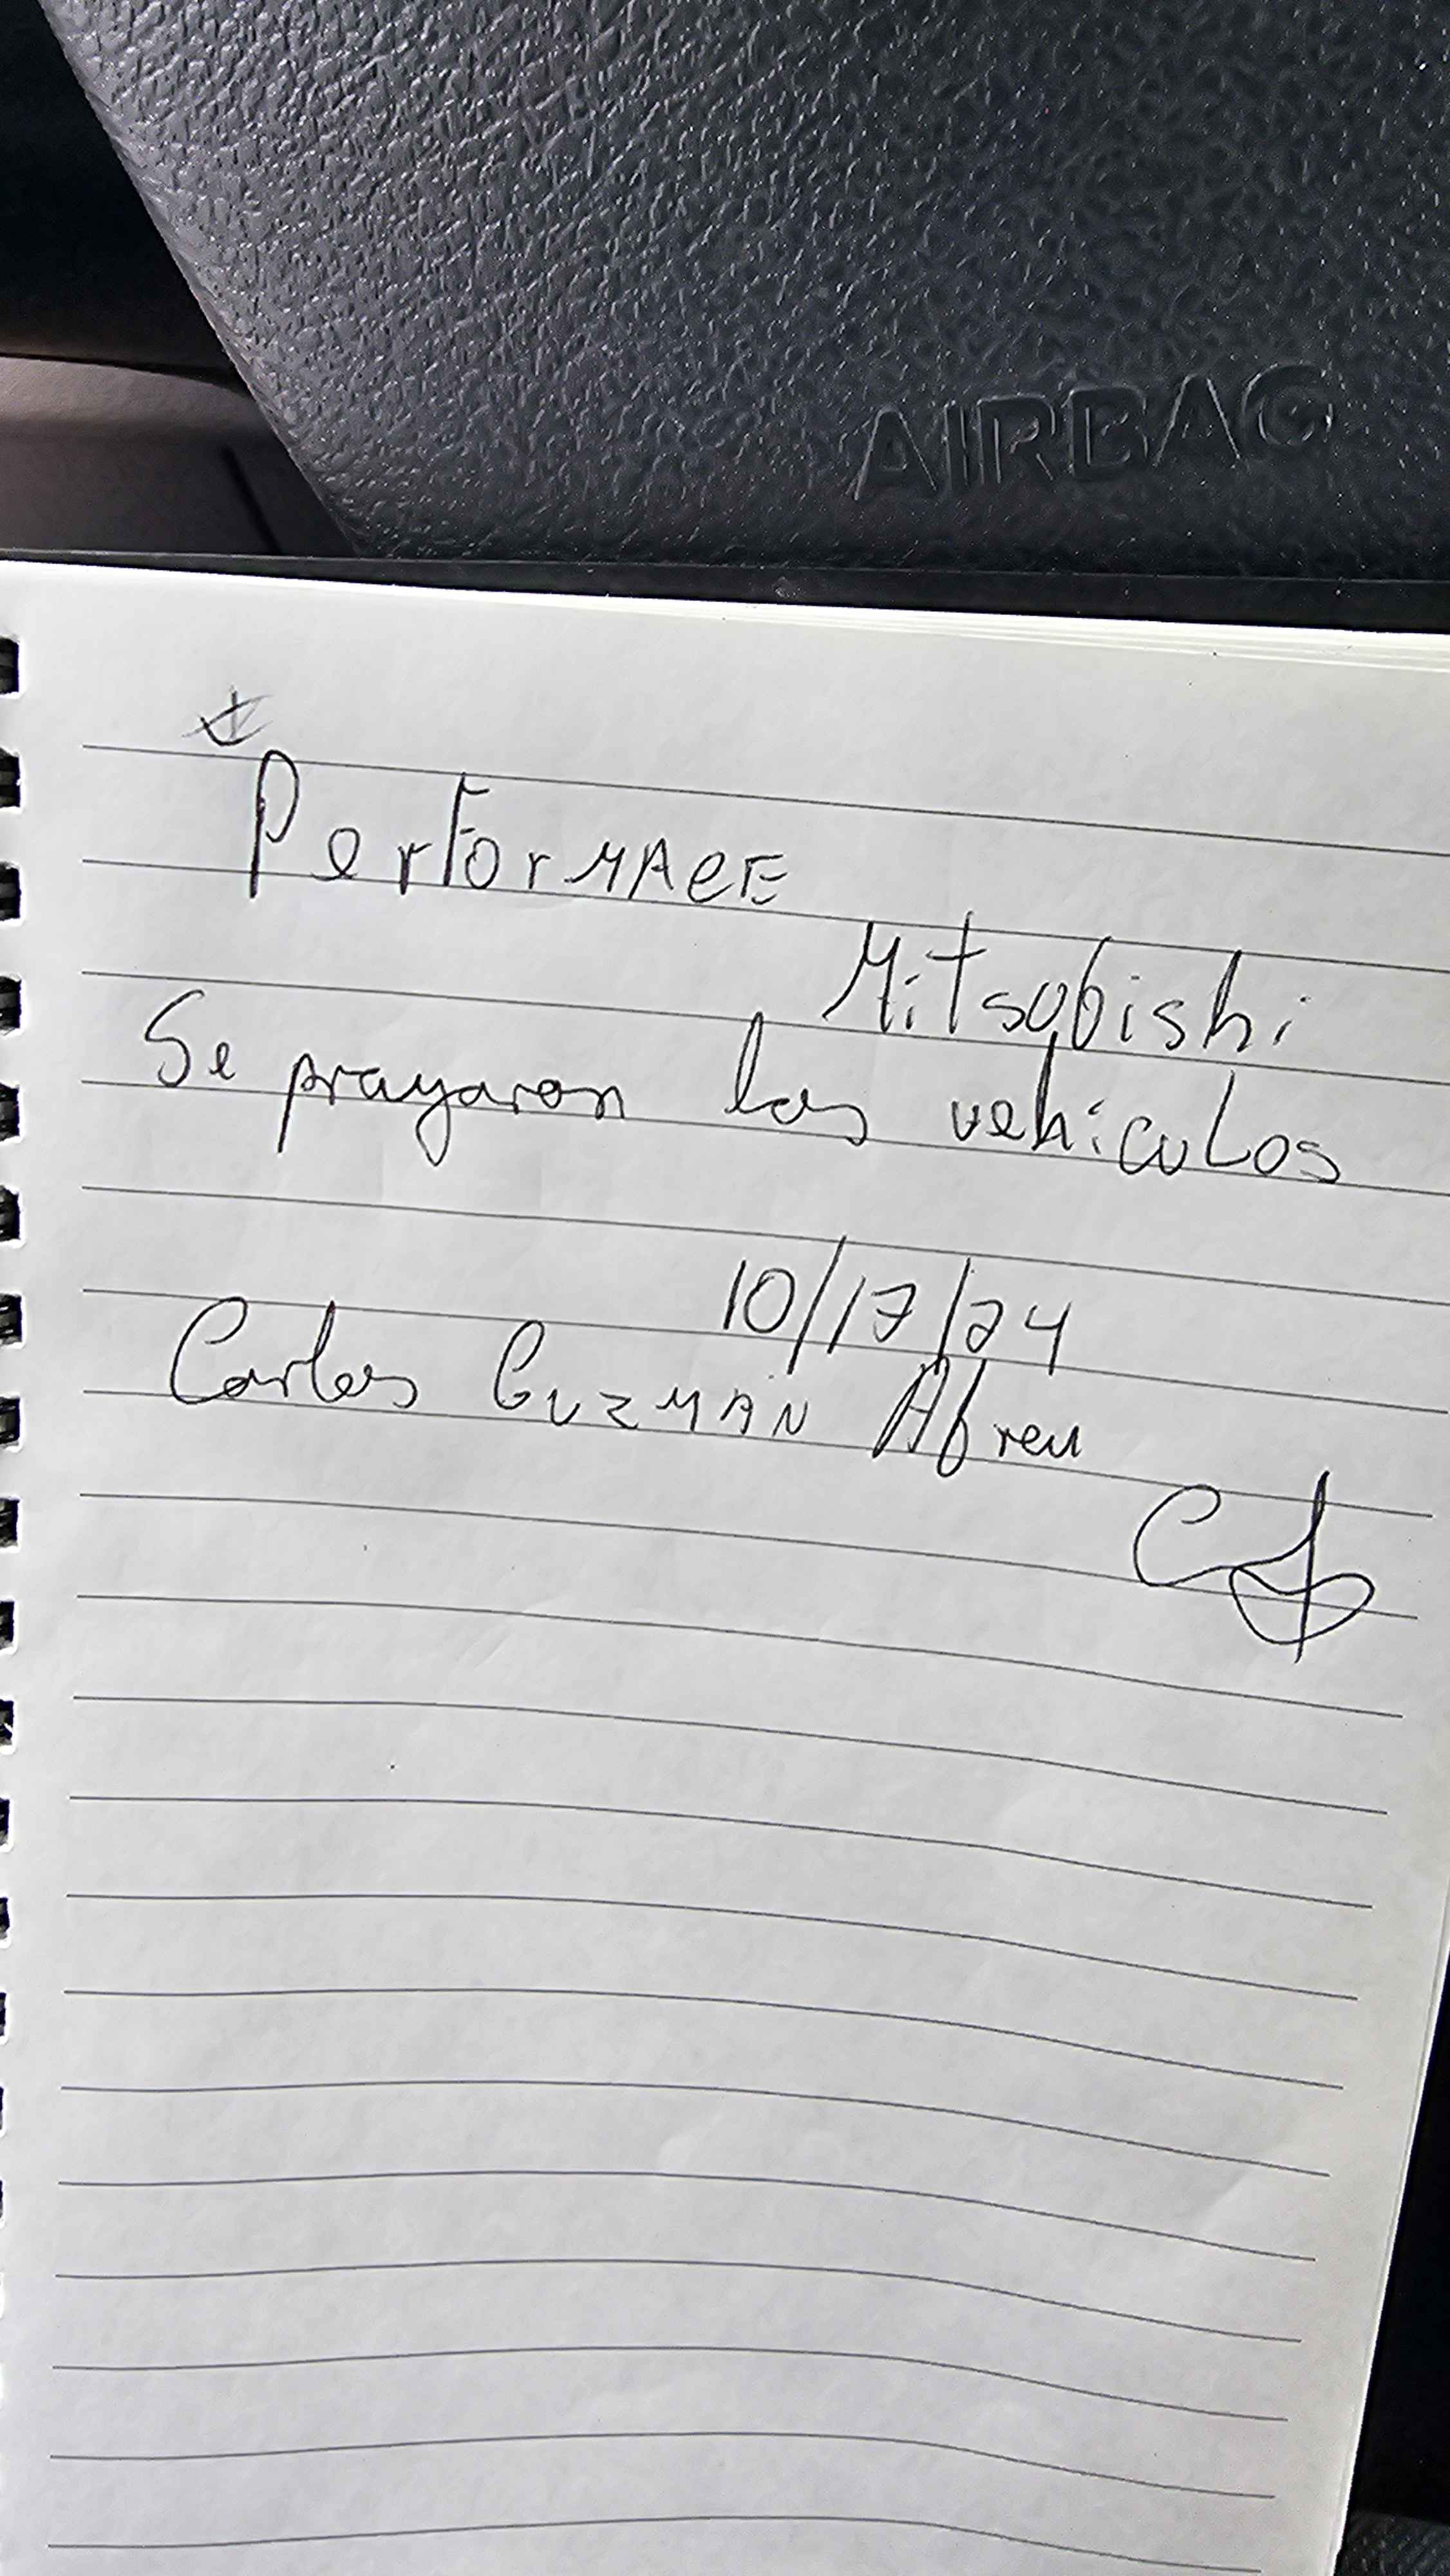 AIRBAG
PerforMACE
Mitsubishi
Se prayaron los vehiculos
10/17/24
Carlos GUZMAN Abreu